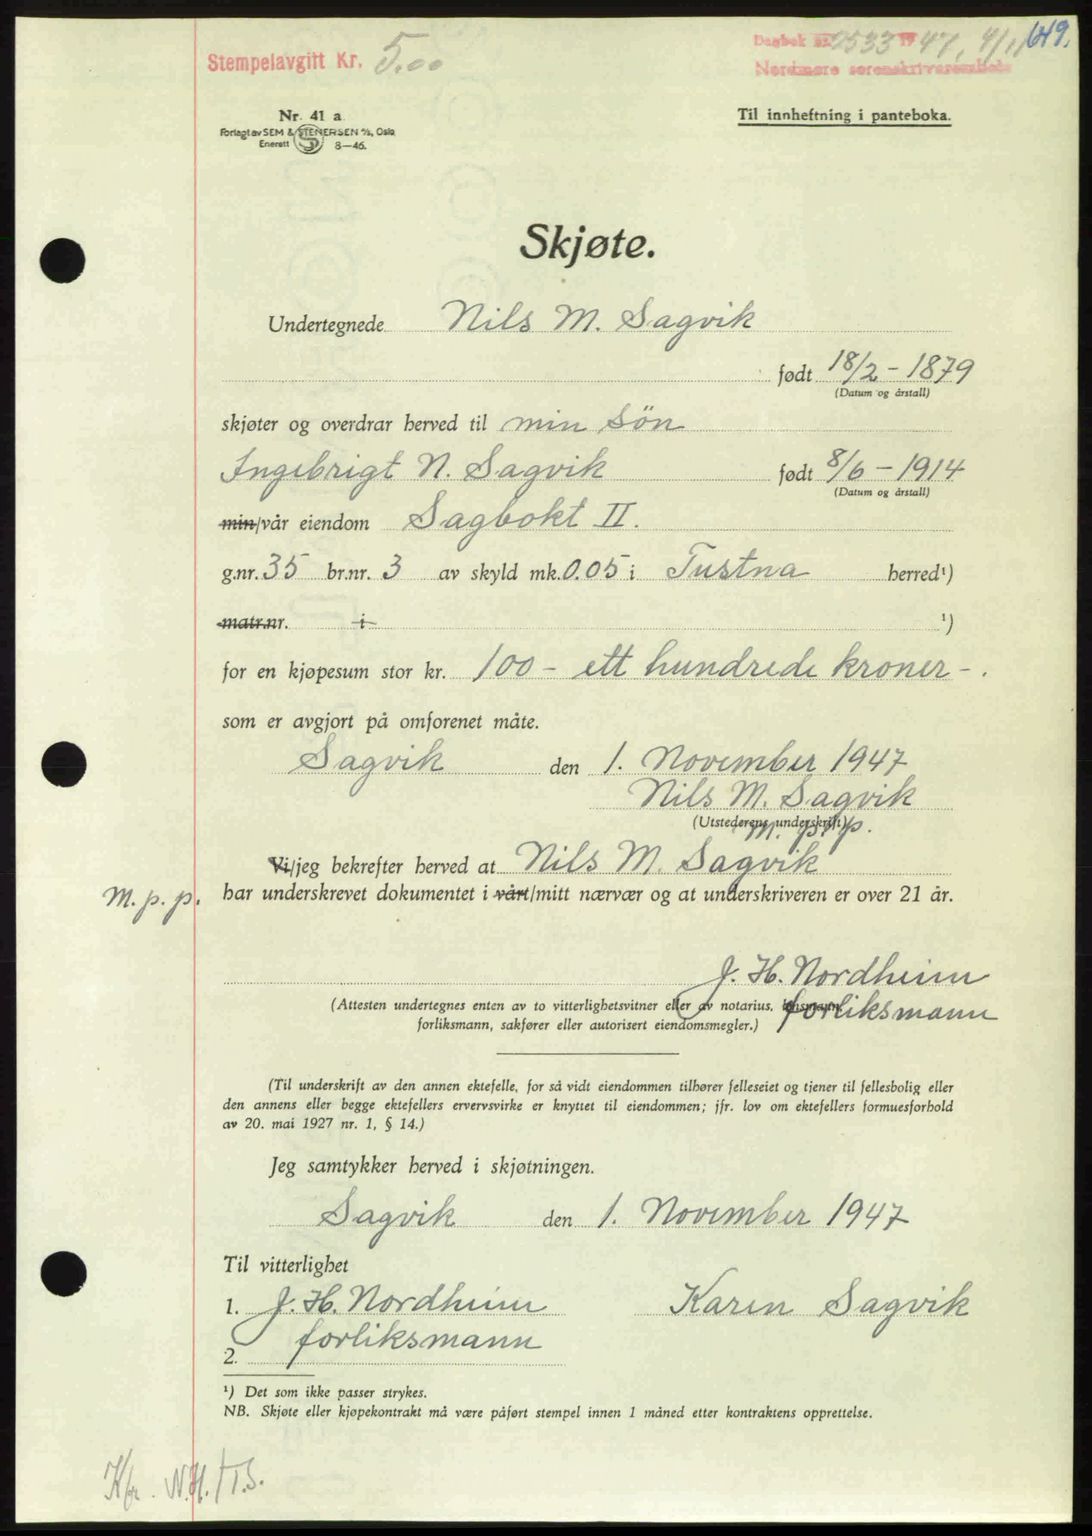 Stempelavgift Kr. 5.00
Dagbok nr. 2533 1947, 4/11 649.
Nordmøre sorenskriverembede
Nr. 41 a
Forlagt av SEM & STENERSEN A/S, Oslo
Enerett S 8—46.
Til innheftning i panteboka.
Skjøte.
Undertegnede Nils M. Sagvik
født 18/2 - 1879
(Datum og årstall)
skjøter og overdrar herved til min søn
Ingebrigt N. Sagvik født 8/6 - 1914
(Datum og årstall)
min/vår eiendom Sagbokt II.
g.nr. 35 br.nr. 3 av skyld mk. 0.05 i Tustna herred¹)
matr.nr. i ¹)
for en kjøpesum stor kr. 100 - ett hundrede kroner - .
som er avgjort på omforenet måte.
Sagvik den 1. November 1947
Nils M. Sagvik
(Utstederens underskrift)
m. p. p.
Vi/jeg bekrefter herved at Nils M. Sagvik
M. p. p. har underskrevet dokumentet i vårt/mitt nærvær og at underskriveren er over 21 år.
J. H. Nordheim
(Attesten undertegnes enten av to vitterlighetsvitner eller av notarius, lensmann, forliksmann
forliksmann, sakfører eller autorisert eiendomsmegler.)
(Til underskrift av den annen ektefelle, for så vidt eiendommen tilhører felleseiet og tjener til fellesbolig eller
den annens eller begge ektefellers ervervsvirke er knyttet til eiendommen; jfr. lov om ektefellers formuesforhold
av 20. mai 1927 nr. 1, § 14.)
Jeg samtykker herved i skjøtningen.
Sagvik den 1. November 1947
Til vitterlighet
1. J. H. Nordheim Karen Sagvik
forliksmann
2.
¹) Det som ikke passer strykes.
NB. Skjøte eller kjøpekontrakt må være påført stempel innen 1 måned etter kontraktens opprettelse.
Kfr. N.H./T.S.